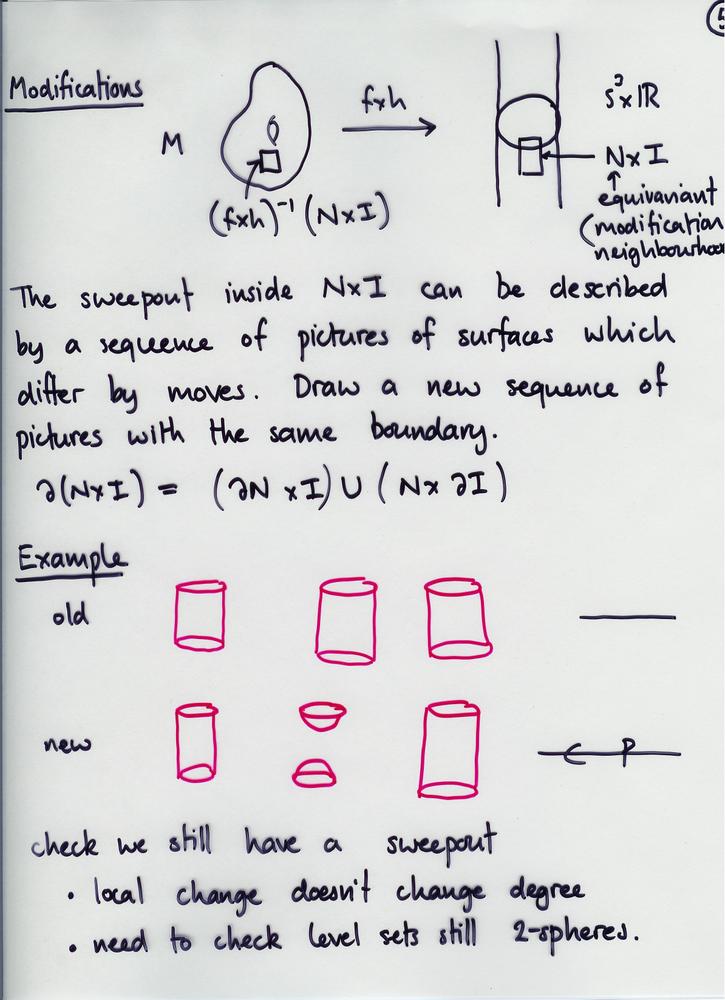 5
Modifications
M
f×h
S²×IR
N×I
(f×h)⁻¹(N×I)
equivariant
(modification
neighbourhood
The sweepout inside N×I can be described
by a sequence of pictures of surfaces which
differ by moves. Draw a new sequence of
pictures with the same boundary.
∂(N×I) = (∂N ×I) ∪ (N× ∂I)
Example
old
new
C P
check we still have a sweepout
• local change doesn't change degree
• need to check level sets still 2-spheres.